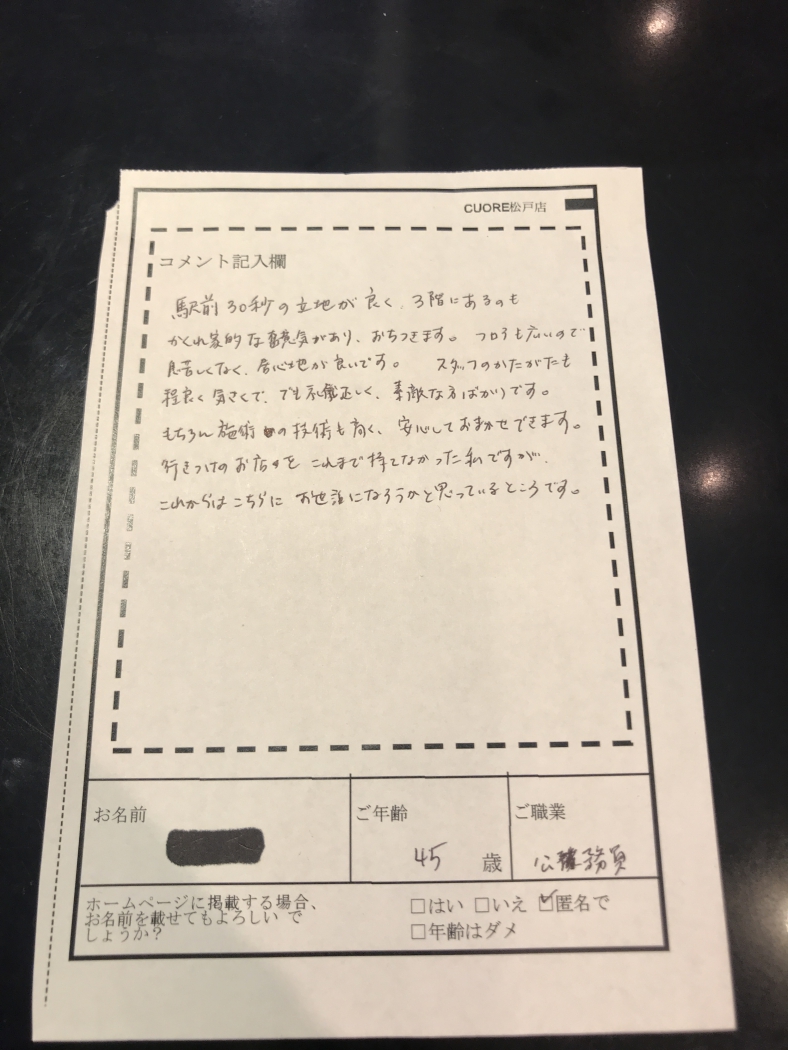 CUORE松戸店
コメント記入欄
駅前30秒の立地が良く、3階にあるのも
かくれ家的な雰囲気があり、おちつきます。フロアも広いので
息苦しくなく、居心地が良いです。 スタッフのかたがたも
程良く気さくで、でも礼儀正しく、素敵な方ばかりです。
もちろん施術の技術も高く、安心しておまかせできます。
行きつけのお店をこれまで持てなかった私ですが、
これからはこちらにお世話になろうかと思っているところです。
お名前 ご年齢 ご職業
45 歳 公務員
ホームページに掲載する場合、
お名前を載せてもよろしいで
しょうか?
□はい □いえ ☑匿名で
□年齢はダメ